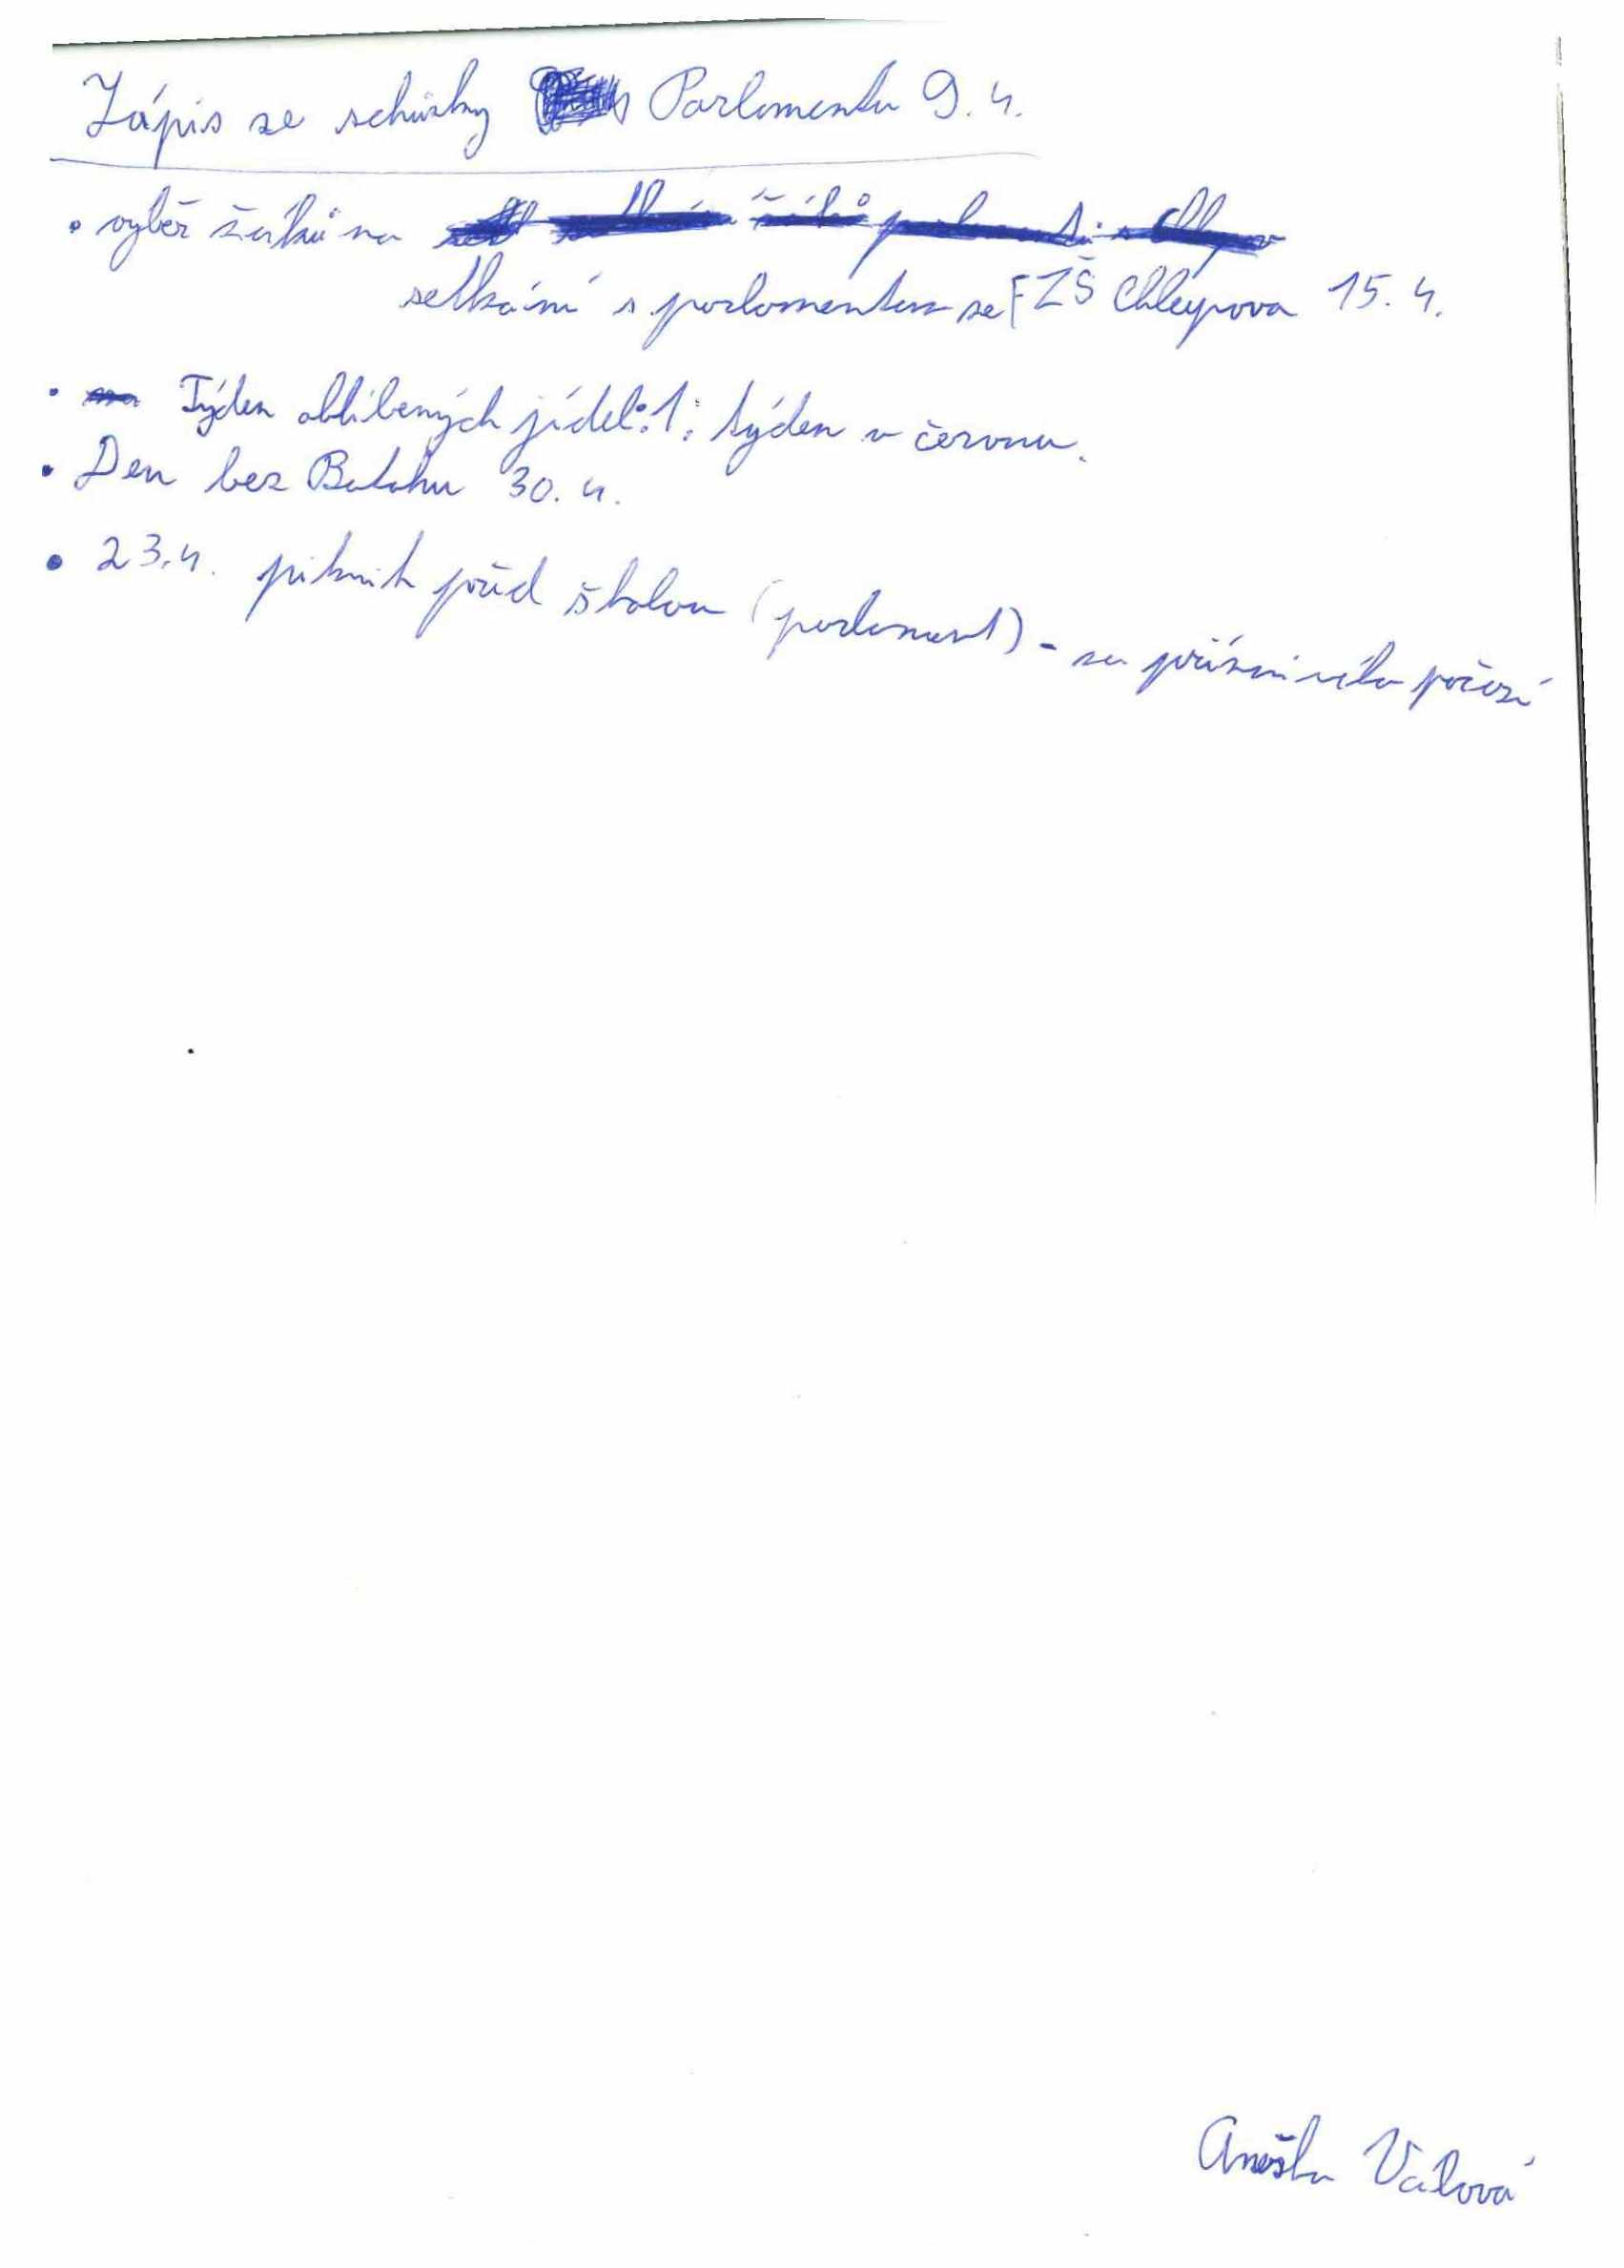 Zápis ze schůzky Parlamentu 9. 4.
• výběr žáků na
setkání s parlamentem ze FZŠ Chlupova 15. 4.
• Týden oblíbených jídel: 1. týden v červnu.
• Den bez Batohu 30. 4.
• 23. 4. piknik před školou (parlament) - za příznivého počasí
Anežka Válová